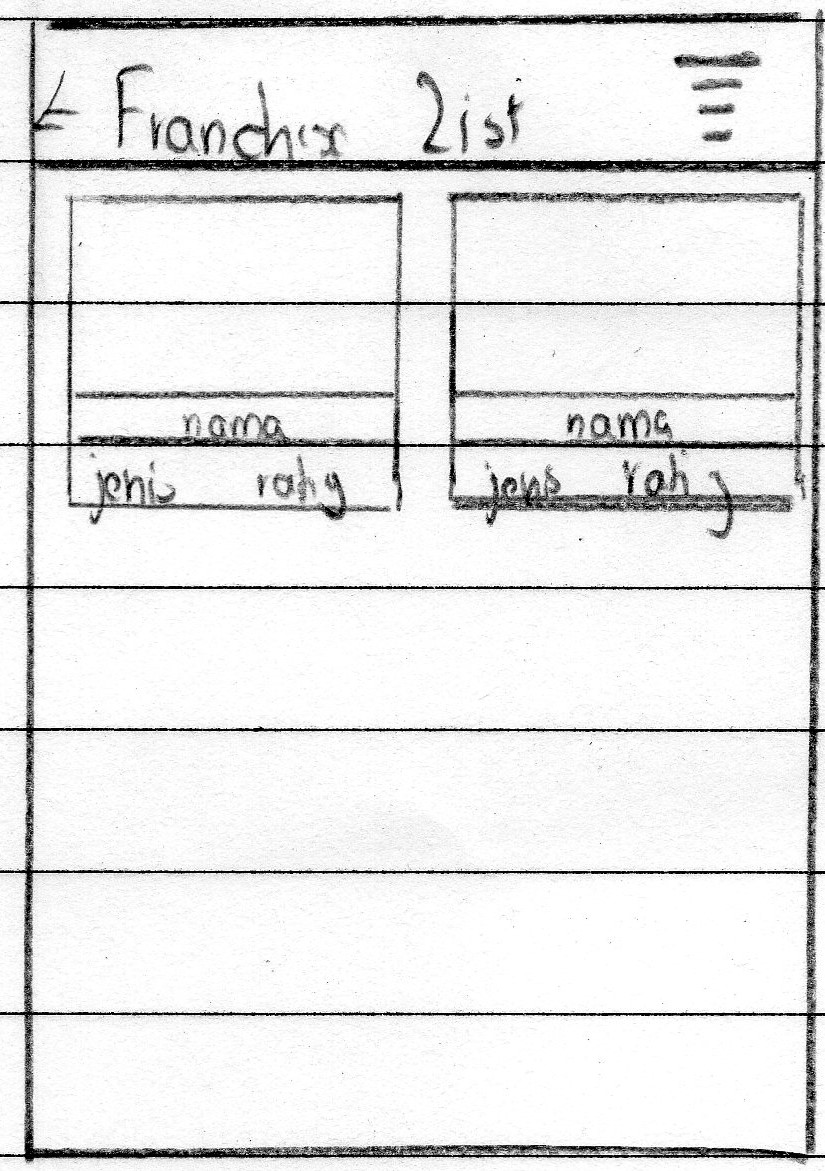 Franchise List
nama nama
jenis rating jenis rating